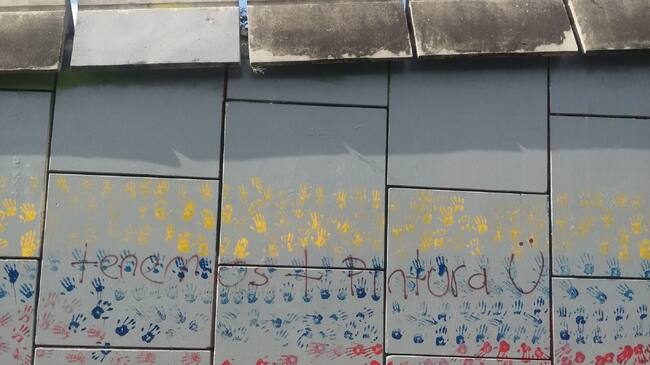 tenemos + Pintura Ü